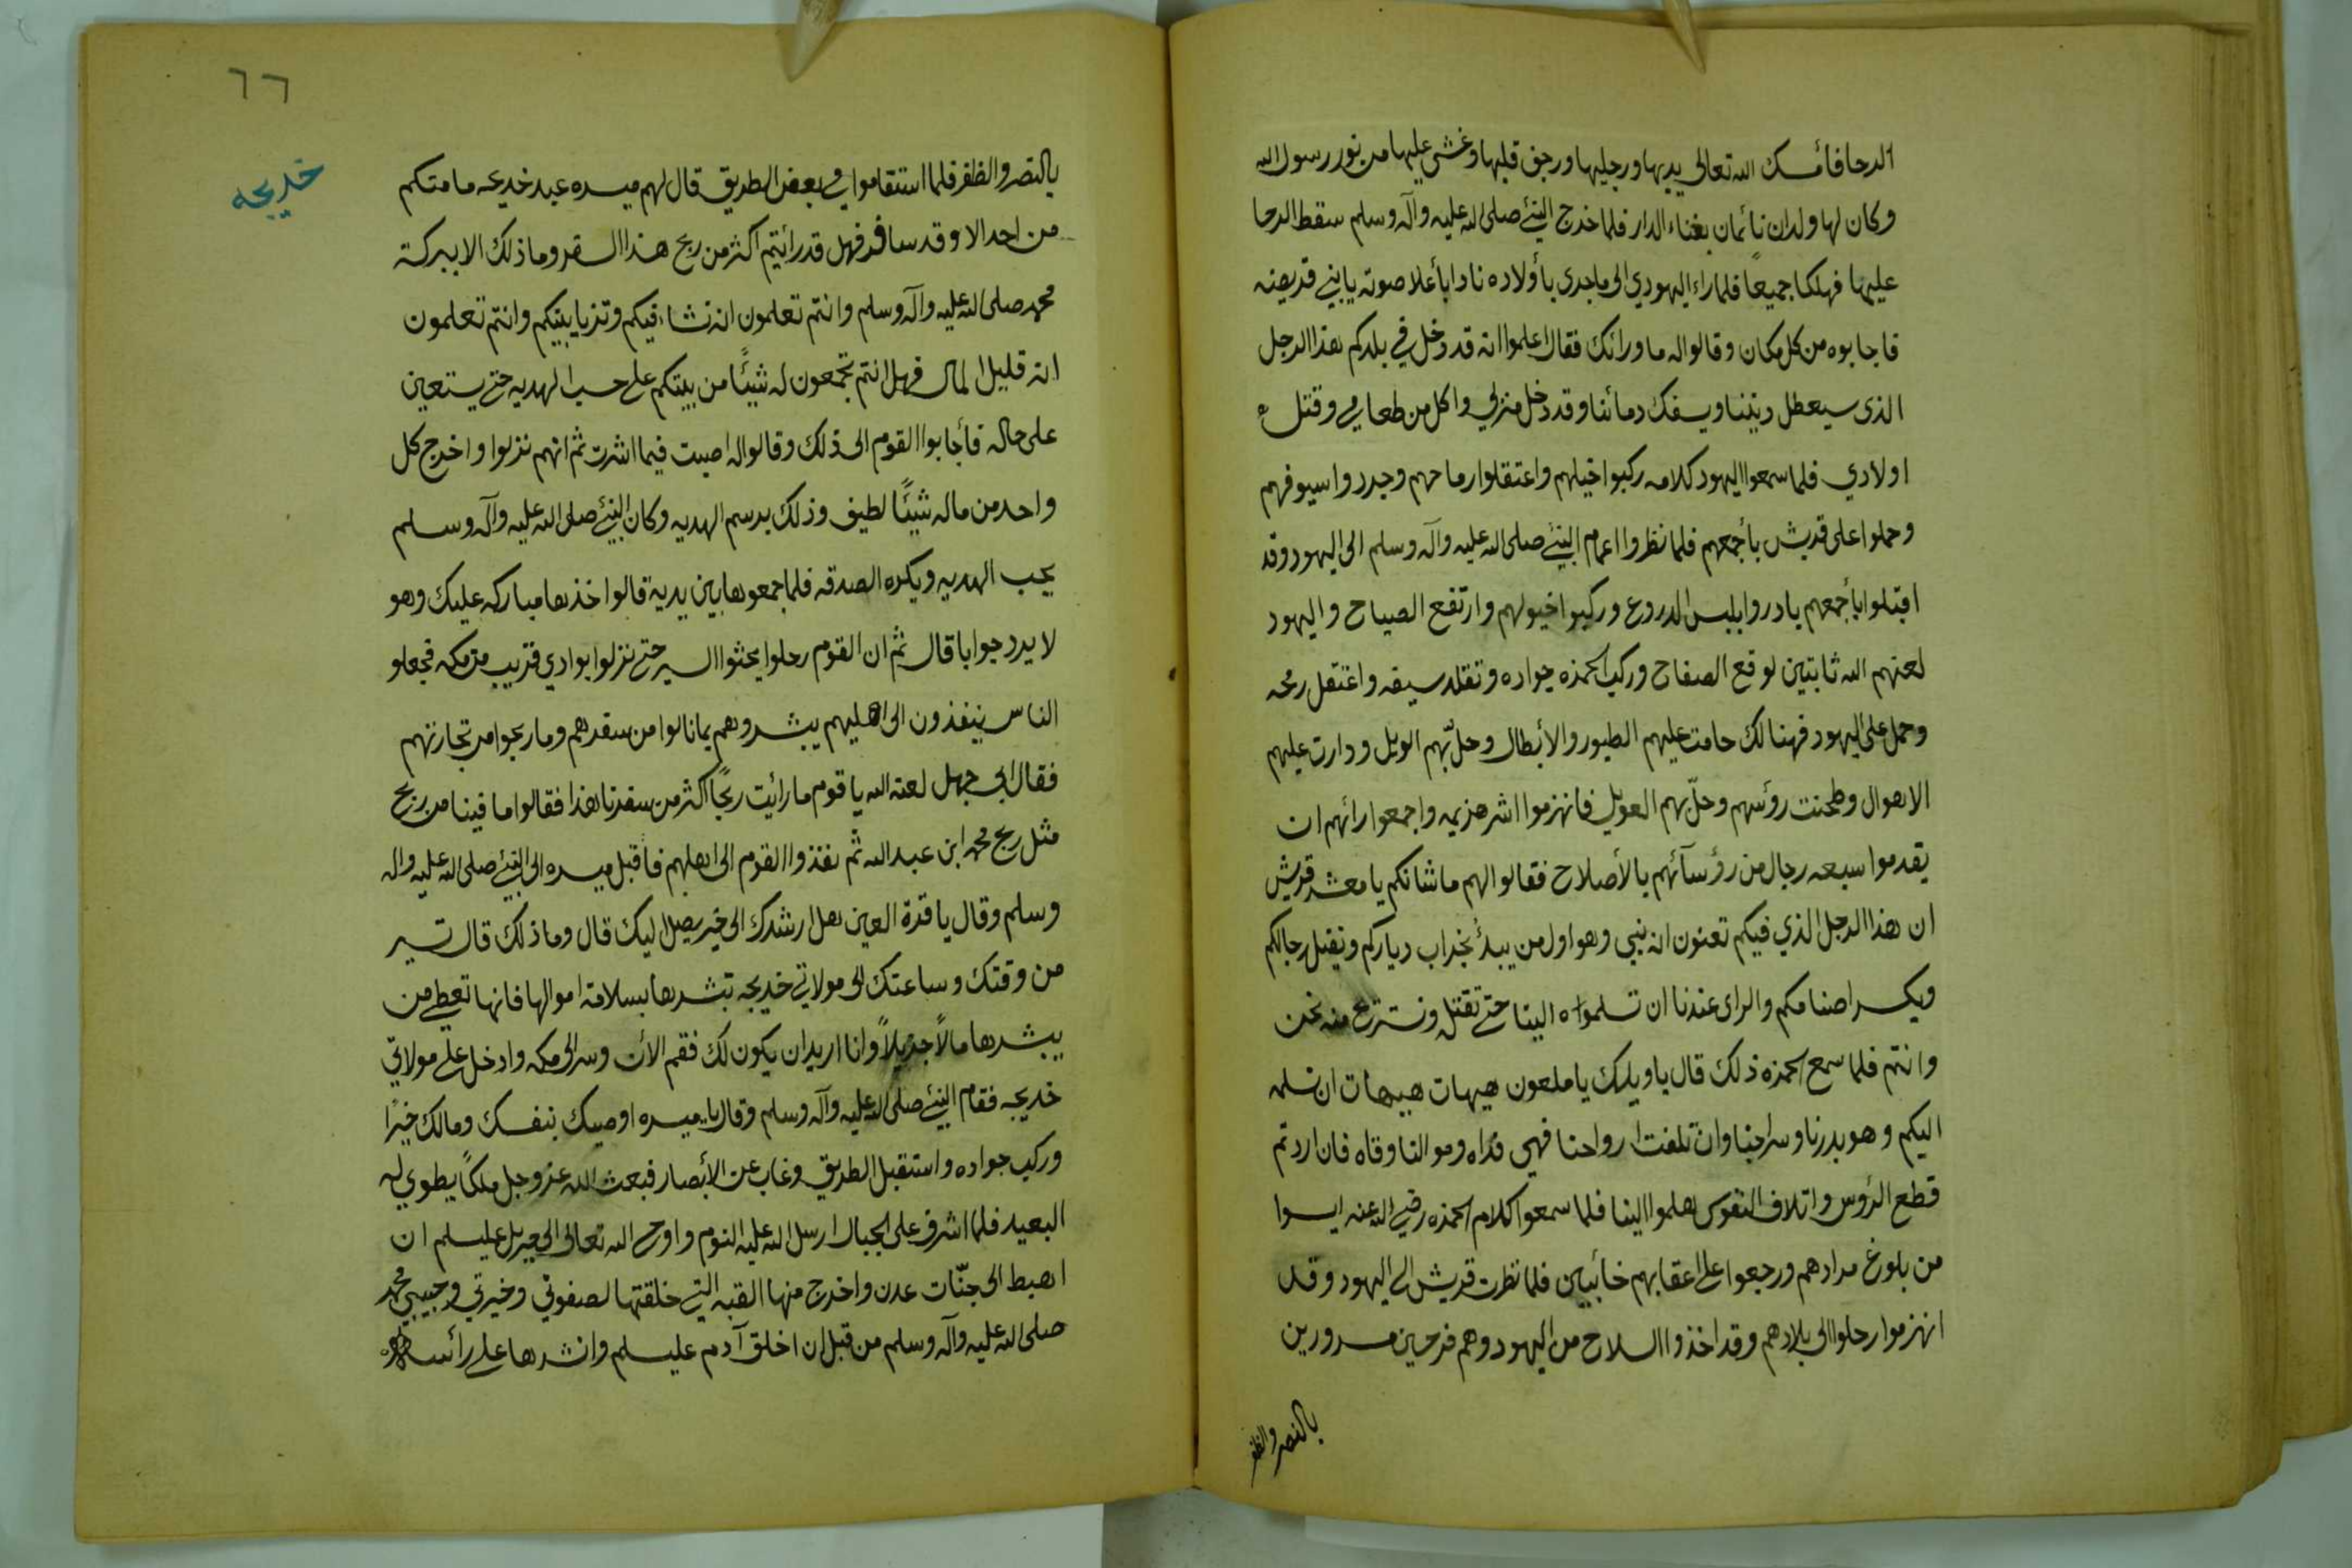 الرحا فائمسك الله تعالى يديها ورجليها ورجف قلبها وغشي عليها من نور رسول الله
وكان لها ولدان نائمان بفناء الدار فلما خرج النبئ صلى الله عليه وآله وسلم سقط الرحا
عليهما فهلكا جميعًا فلما راء اليهودي الى ما جرى بأولاده نادا بأعلا صوته يا بني قريضه
فاجابوه من كل مكان وقالوا له ما ورائك فقال اعلموا انه قد دخل في بلدكم هذا الرجل
الذى سيعطل ديننا ويسفك دمائنا وقد دخل منزلي واكل من طعامي وقتل
اولادي فلما سمعوا اليهود كلامه ركبوا خيلهم واعتقلوا رماحهم وجردوا سيوفهم
وحملوا على قريش بأجمعهم فلما نظروا اعمام النبئ صلى الله عليه وآله وسلم الى اليهود وقد
اقبلوا بأجمعهم بادروا بلبس الدروع وركبوا خيولهم وارتفع الصياح واليهود
لعنهم الله ثابتين لوقع الصفاح وركب الحمزه جواده وتقلد سيفه واعتقل رمحه
وحمل على اليهود فهنالك حامت عليهم الطيور والأبطال وحلّ بهم الويل ودارت عليهم
الاهوال وطحنت رؤسهم وحلّ بهم العويل فانهزموا اشر هزيمه واجمعوا رائهم ان
يقدموا سبعه رجال من رؤسآئهم بالأصلاح فقالوا لهم ما شانكم يا معشر قريش
ان هذا الرجل الذي فيكم تعنون انه نبي وهو اول من يبدأ بخراب دياركم ويقتل رجالكم
ويكسر اصنامكم والراى عندنا ان تسلموه الينا حتى نقتله ونستريح منه نحن
وانتم فلما سمع الحمزه ذلك قال يا ويلك يا ملعون هيهات هيهات ان نسلمه
اليكم وهو بدرنا وسراجنا وان تلفت ارواحنا فهي فداه وموالنا وقاه فان اردتم
قطع الرؤس واتلاف النفوس هلموا الينا فلما سمعوا كلام الحمزه رضي الله عنه ايسوا
من بلوغ مرادهم ورجعوا على اعقابهم خائبين فلما نظرت قريش الى اليهود وقد
انهزموا رحلوا الى بلادهم وقد اخذوا السلاح من اليهود وهم فرحين مسرورين
بالنصر والظفر
٦٦
خديجه
بالنصر والظفر فلما استقاموا في بعض الطريق قال لهم ميسره عبد خديجه ما منكم
من احد الا وقد سافر فهل قد رائيتم اكثر من ربح هذا السفر وما ذلك الا ببركة
محمد صلى الله عليه وآله وسلم وانتم تعلمون انه نشاء فيكم وتزيا بينكم وانتم تعلمون
انه قليل المال فهل انتم تجمعون له شيئًا من بينكم على حسب الهديه حتى يستعين
على حاله فأجابوا القوم الى ذلك وقالوا له اصبت فيما اشرت ثم انهم نزلوا واخرج كل
واحد من ماله شيئًا لطيف وذلك برسم الهديه وكان النبئ صلى الله عليه وآله وسلم
يحب الهديه ويكره الصدقه فلما جمعوها بين يديه قالوا خذها مباركه عليك وهو
لا يرد جوابا قال ثم ان القوم رحلوا يحثوا السير حتى نزلوا بوادي قريب من مكه فجعلو
الناس ينفذون الى اهليهم يبشروهم بما نالوا من سفرهم وما ربحوا من تجارتهم
فقال ابي جهل لعنه الله يا قوم ما رائيت ربحًا اكثر من سفرنا هذا فقالوا ما فينا من ربح
مثل ربح محمد ابن عبد الله ثم نفذوا القوم الى اهلهم فاقبل ميسره الى النبئ صلى الله عليه واله
وسلم وقال يا قرة العين هل ارشدك الى خير يصل اليك قال وما ذلك قال تسير
من وقتك وساعتك الى مولاتي خديجه تبشرها بسلامة اموالها فانها تعطي من
يبشرها مالاً جزيلاً وانا اريد ان يكون لك فقم الأن وسر الى مكه وادخل على مولاتي
خديجه فقام النبئ صلى الله عليه وآله وسلم وقال يا ميسره اوصيك بنفسك ومالك خيرًا
وركب جواده واستقبل الطريق وغاب عن الأبصار فبعث الله عز وجل ملكًا يطوي له
البعيد فلما اشرف على الجبال ارسل الله عليه النوم واوحى الله تعالى الى جبريل عليسلم ان
اهبط الى جنّات عدن واخرج منها القبه التي خلقتها لصفوتي وخيرتي وحبيبي محمد
صلى الله عليه وآله وسلم من قبل ان اخلق آدم عليسلم وانشرها على رائسه